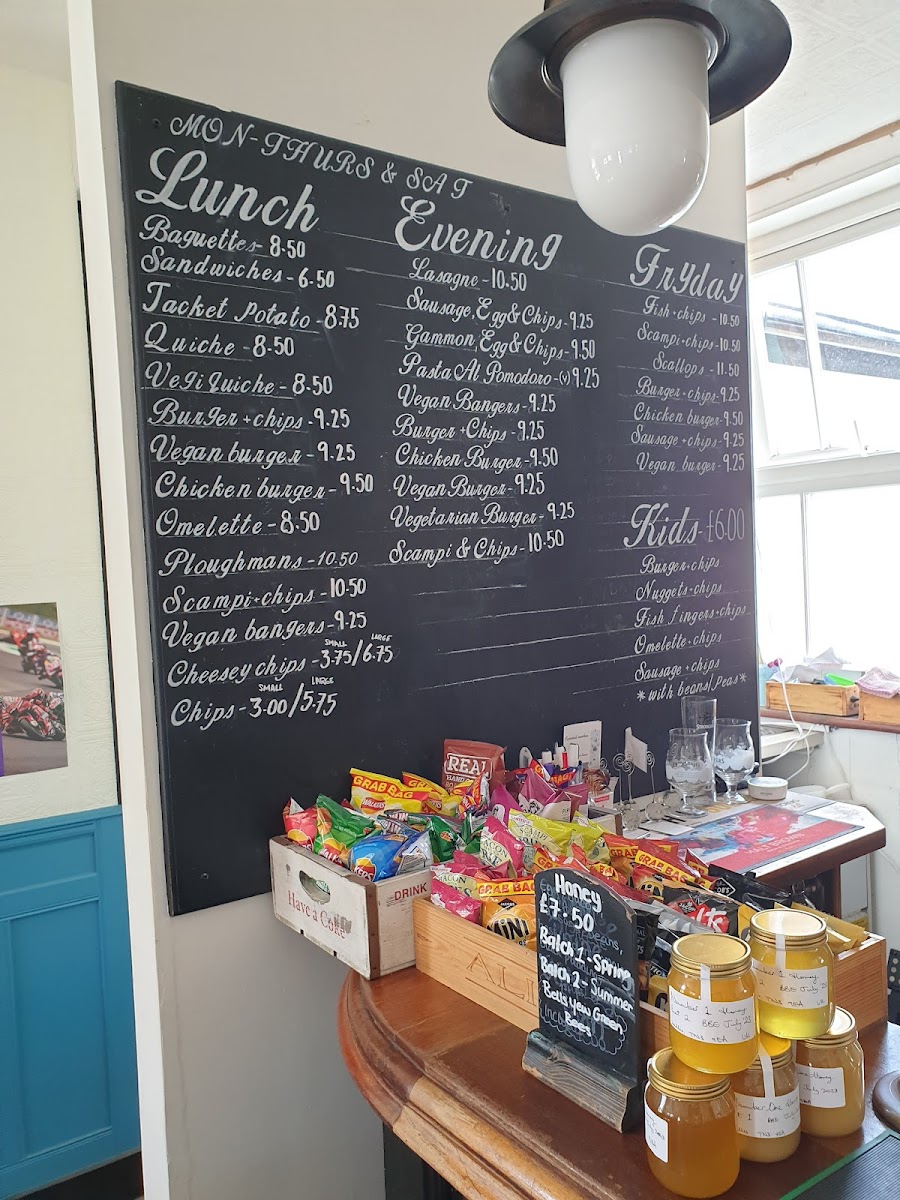 MON-THURS & SAT
Lunch
Baguettes - 8.50
Sandwiches - 6.50
Jacket potato - 8.75
Quiche - 8.50
Vegi quiche - 8.50
Burger + chips - 9.25
Vegan burger - 9.25
Chicken burger - 9.50
Omelette - 8.50
Ploughmans - 10.50
Scampi + chips - 10.50
Vegan bangers - 9.25
SMALL LARGE
Cheesey chips - 3.75/6.75
SMALL LARGE
Chips - 3.00/5.75
Evening
Lasagne - 10.50
Sausage, Egg & Chips - 9.25
Gammon Egg & Chips - 9.50
Pasta Al Pomodoro - (v) 9.25
Vegan Bangers - 9.25
Burger + Chips - 9.25
Chicken Burger - 9.50
Vegan Burger - 9.25
Vegetarian Burger - 9.25
Scampi & Chips - 10.50
Fryday
Fish + chips - 10.50
Scampi + chips - 10.50
Scallops - 11.50
Burger + chips - 9.25
Chicken burger - 9.50
Sausage + chips - 9.25
Vegan burger - 9.25
Kids - £6.00
Burger + chips
Nuggets + chips
Fish fingers + chips
Omelette + chips
Sausage + chips
*with beans/peas*
REAL
GRAB BAG
GRAB BAG
GRAB BAG
GRAB BAG
MINI
DRINK
Have a Coke
Honey
£7.50
Batch 1 - Spring
Batch 2 - Summer
Bells Yew Green
Bees
Number 1 Honey
BBE July
BBE July